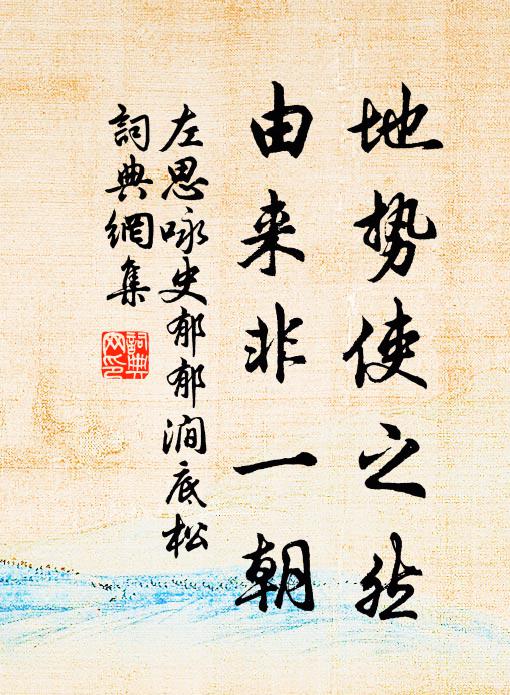 地势使之然
由来非一朝
左思咏史郁郁涧底松
詞典網集
詞典網印